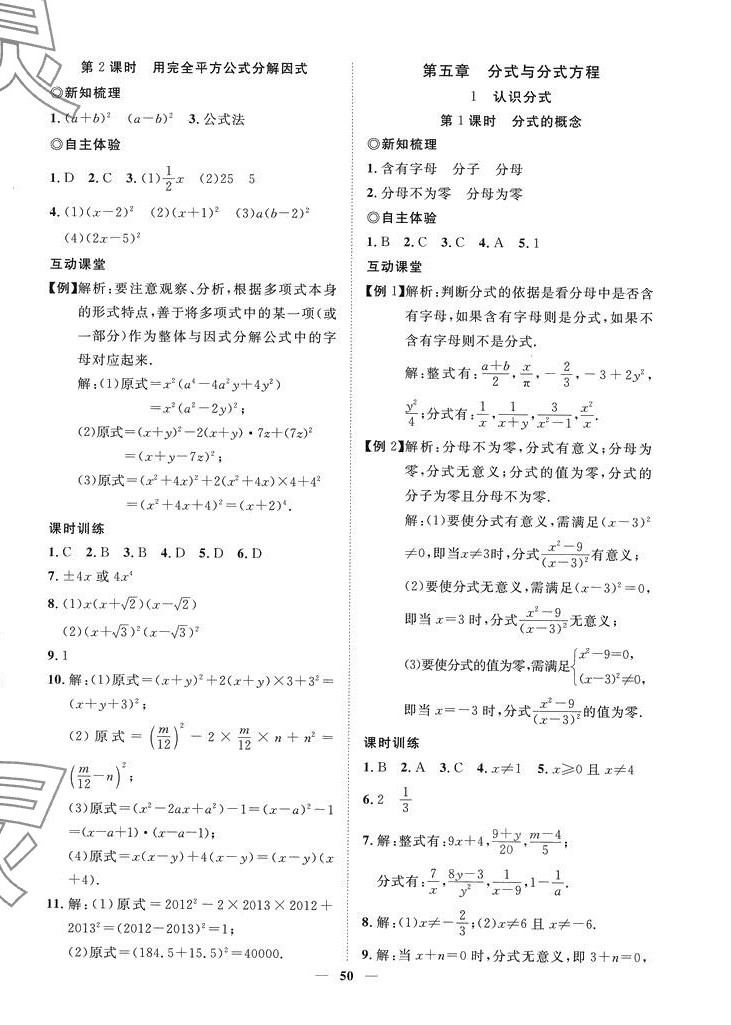 第2课时 用完全平方公式分解因式
◎新知梳理
1.(a+b)² (a-b)² 3.公式法
◎自主体验
1.D 2.C 3.(1)1/2x (2)25 5
4.(1)(x-2)² (2)(x+1)² (3)a(b-2)²
(4)(2x-5)²
互动课堂
【例】解析:要注意观察、分析,根据多项式本身
的形式特点,善于将多项式中的某一项(或
一部分)作为整体与因式分解公式中的字
母对应起来.
解:(1)原式=x²(a⁴-4a²y+4y²)
=x²(a²-2y)²;
(2)原式=(x+y)²-2(x+y)·7z+(7z)²
=(x+y-7z)²;
(3)原式=(x²+4x)²+2(x²+4x)×4+4²
=(x²+4x+4)²=(x+2)⁴.
课时训练
1.C 2.B 3.B 4.D 5.D 6.D
7.±4x 或 4x⁴
8.(1)x(x+√2)(x-√2)
(2)(x+√3)²(x-√3)²
9.1
10.解:(1)原式=(x+y)²+2(x+y)×3+3²=
(x+y+3)²;
(2)原式=(m/12)²-2×m/12×n+n²=
(m/12-n)²;
(3)原式=(x²-2ax+a²)-1=(x-a)²-1
=(x-a+1)·(x-a-1);
(4)原式=x(x-y)+4(x-y)=(x-y)(x
+4).
11.解:(1)原式=2012²-2×2013×2012+
2013²=(2012-2013)²=1;
(2)原式=(184.5+15.5)²=40000.
第五章 分式与分式方程
1 认识分式
第1课时 分式的概念
◎新知梳理
1.含有字母 分子 分母
2.分母不为零 分母为零
◎自主体验
1.B 2.C 3.C 4.A 5.1
互动课堂
【例1】解析:判断分式的依据是看分母中是否含
有字母,如果含有字母则是分式,如果不
含有字母则不是分式.
解:整式有:(a+b)/2,x/π,-2/3,-3+2y²,
y²/4;分式有:1/x,1/(x+y),3/(x²-1),x²/x.
【例2】解析:分母不为零,分式有意义;分母为
零,分式无意义;分式的值为零,分式的
分子为零且分母不为零.
解:(1)要使分式有意义,需满足(x-3)²
≠0,即当x≠3时,分式(x²-9)/(x-3)²有意义;
(2)要使分式无意义,需满足(x-3)²=0,
即当x=3时,分式(x²-9)/(x-3)²无意义;
(3)要使分式的值为零,需满足{x²-9=0,
(x-3)²≠0,
即当x=-3时,分式(x²-9)/(x-3)²的值为零.
课时训练
1.B 2.A 3.C 4.x≠1 5.x≥0且x≠4
6.2 1/3
7.解:整式有:9x+4,(9+y)/20,(m-4)/5;
分式有:7/x,(8y-3)/y²,1/(x-9),1-1/a.
8.解:(1)x≠-2/3;(2)x≠6且x≠-6.
9.解:当x+n=0时,分式无意义,即3+n=0,
— 50 —